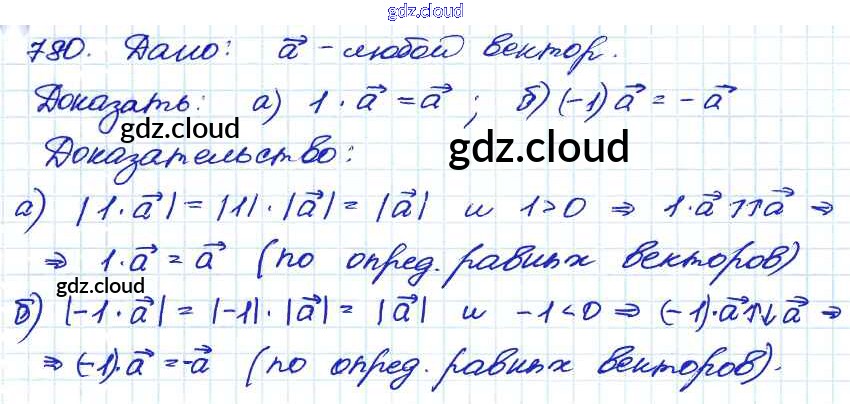 gdz.cloud
780. Дано: a⃗ - любой вектор.
Доказать: а) 1 · a⃗ = a⃗ ; б) (-1) a⃗ = - a⃗
gdz.cloud
Доказательство: gdz.cloud
а) |1 · a⃗| = |1| · |a⃗| = |a⃗| и 1 > 0 ⇒ 1 · a⃗ ↑↑ a⃗ ⇒
⇒ 1 · a⃗ = a⃗ (по опред. равных векторов)
gdz.cloud
б) |-1 · a⃗| = |-1| · |a⃗| = |a⃗| и -1 < 0 ⇒ (-1) · a⃗ ↑↓ a⃗ ⇒
⇒ (-1) · a⃗ = -a⃗ (по опред. равных векторов).